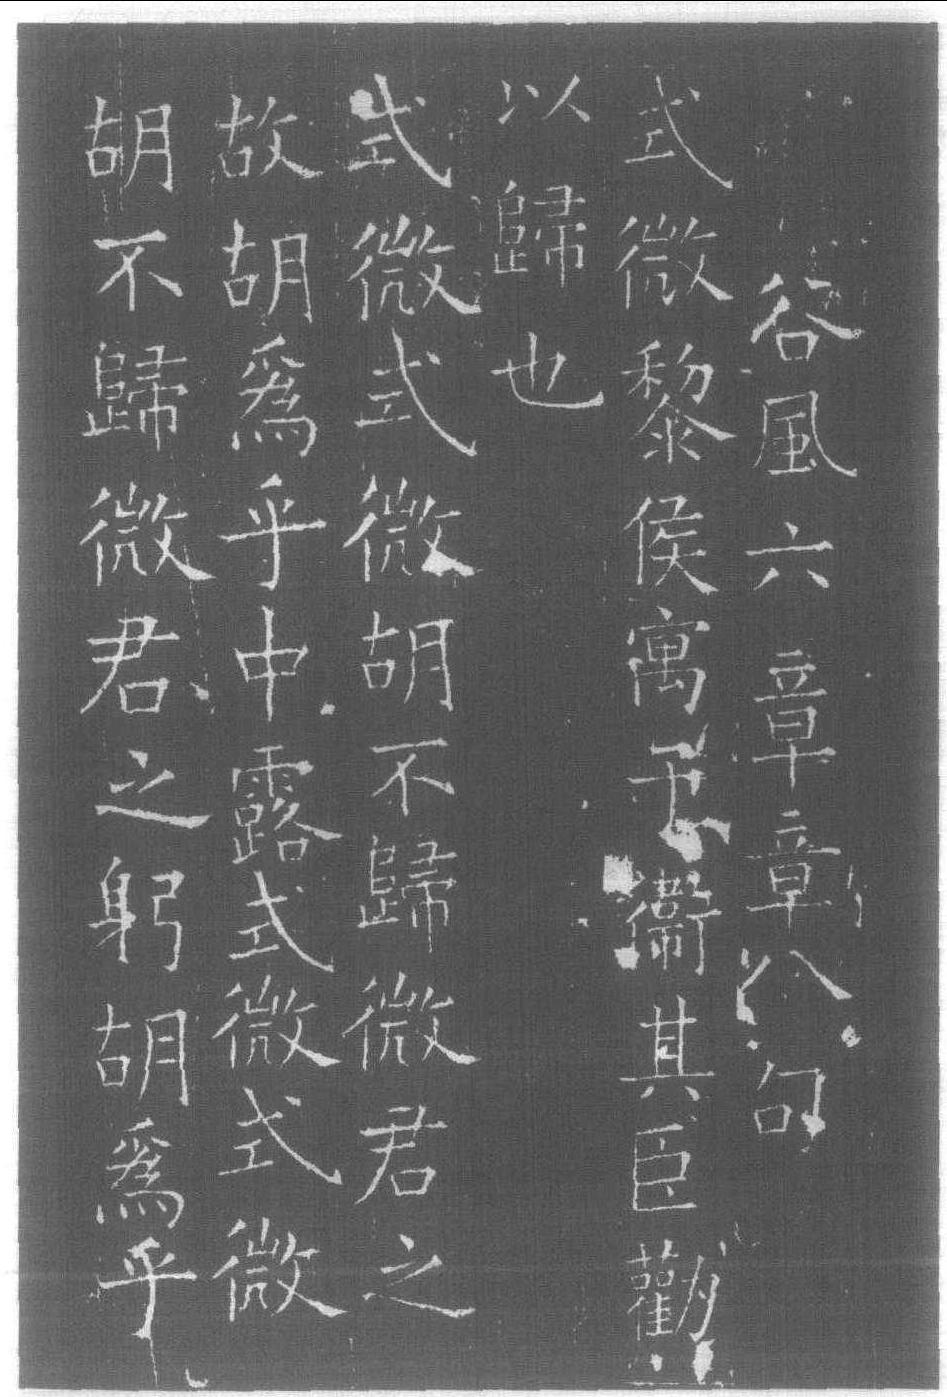 谷風六章章八句
式微黎侯寓于衛其臣勸
以歸也
式微式微胡不歸微君之
故胡爲乎中露式微式微
胡不歸微君之躬胡爲乎